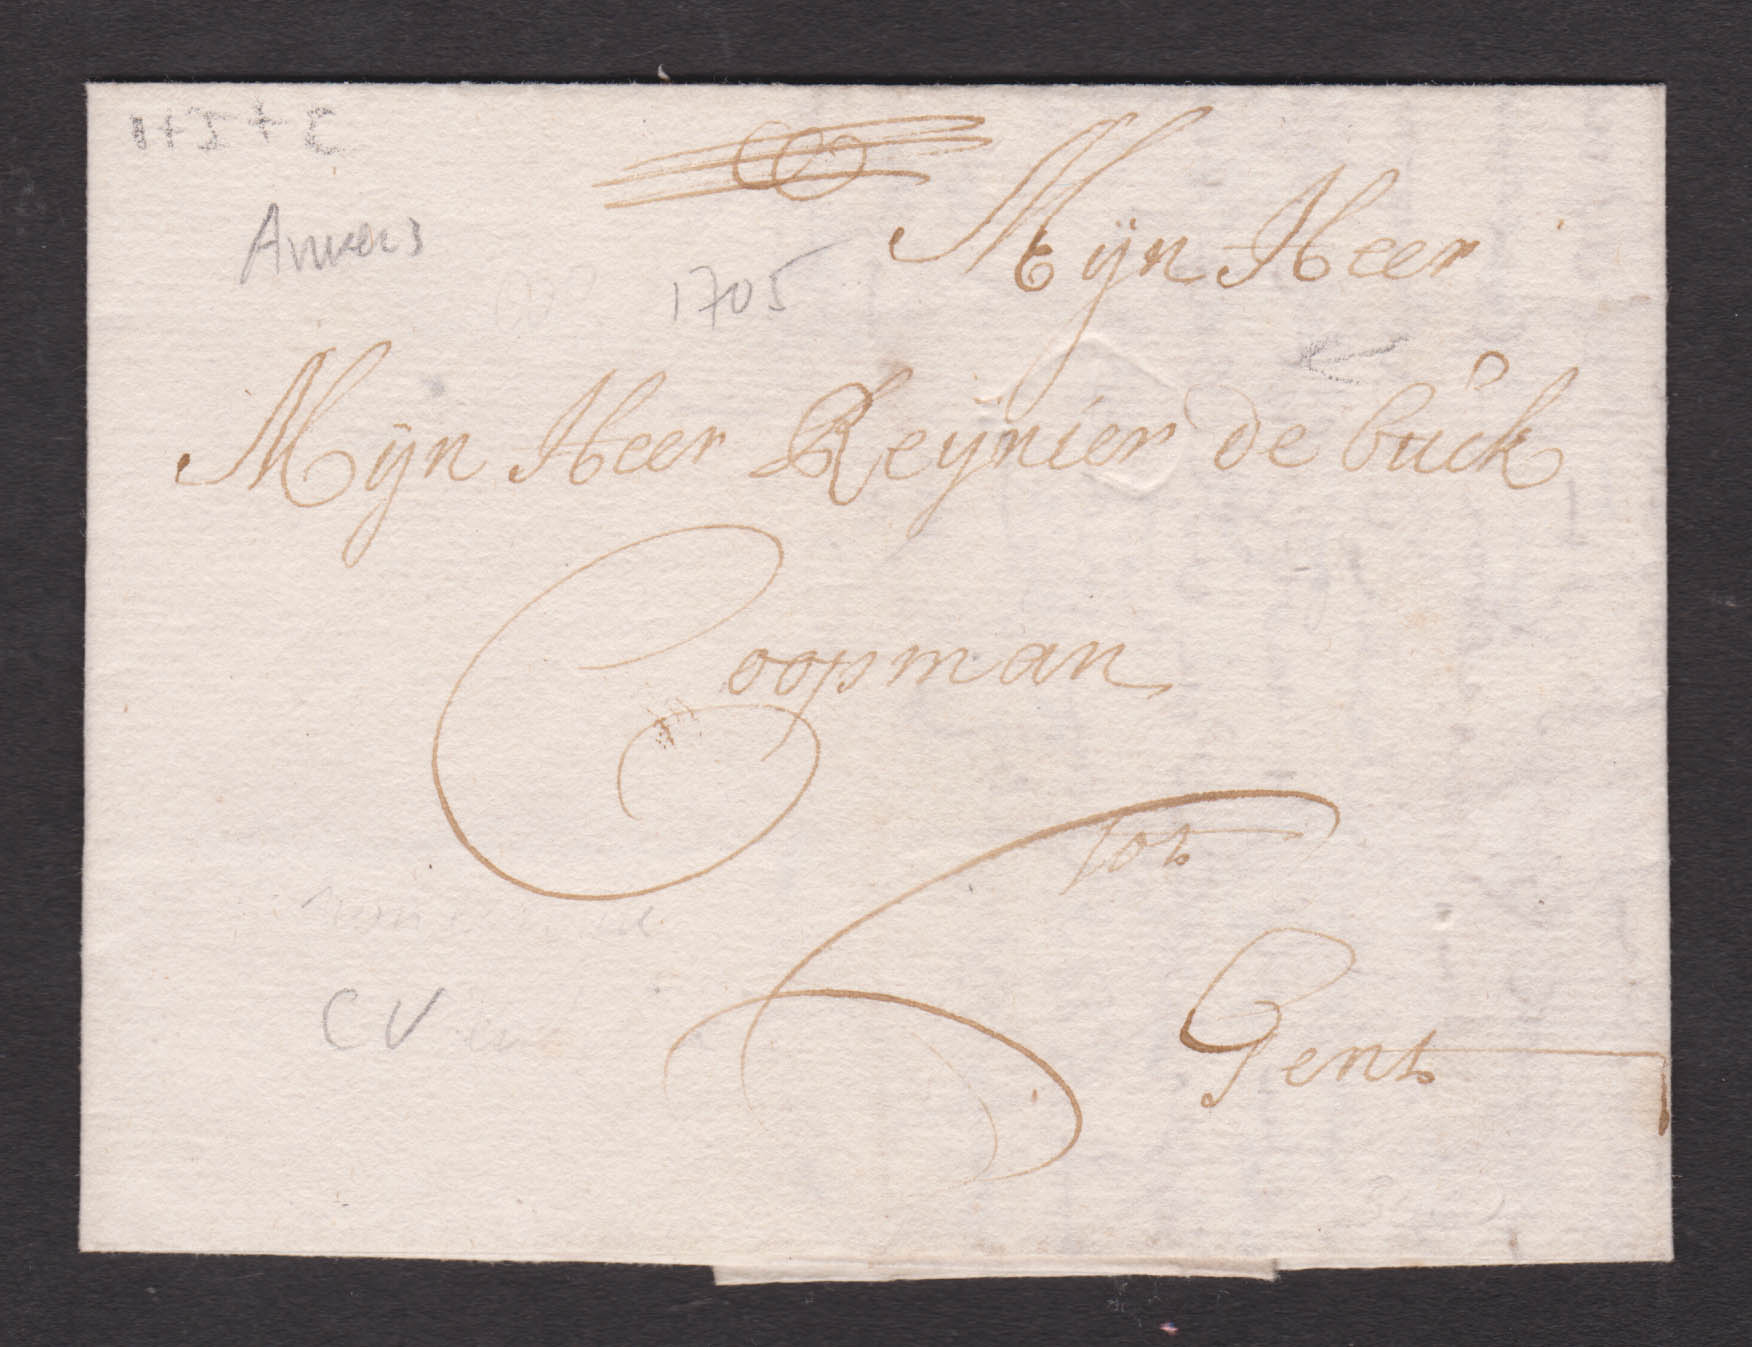 Anvers
1705
Mijn Heer
Mijn Heer Reijnier de bůck
Coopman
tot
Gent
CV